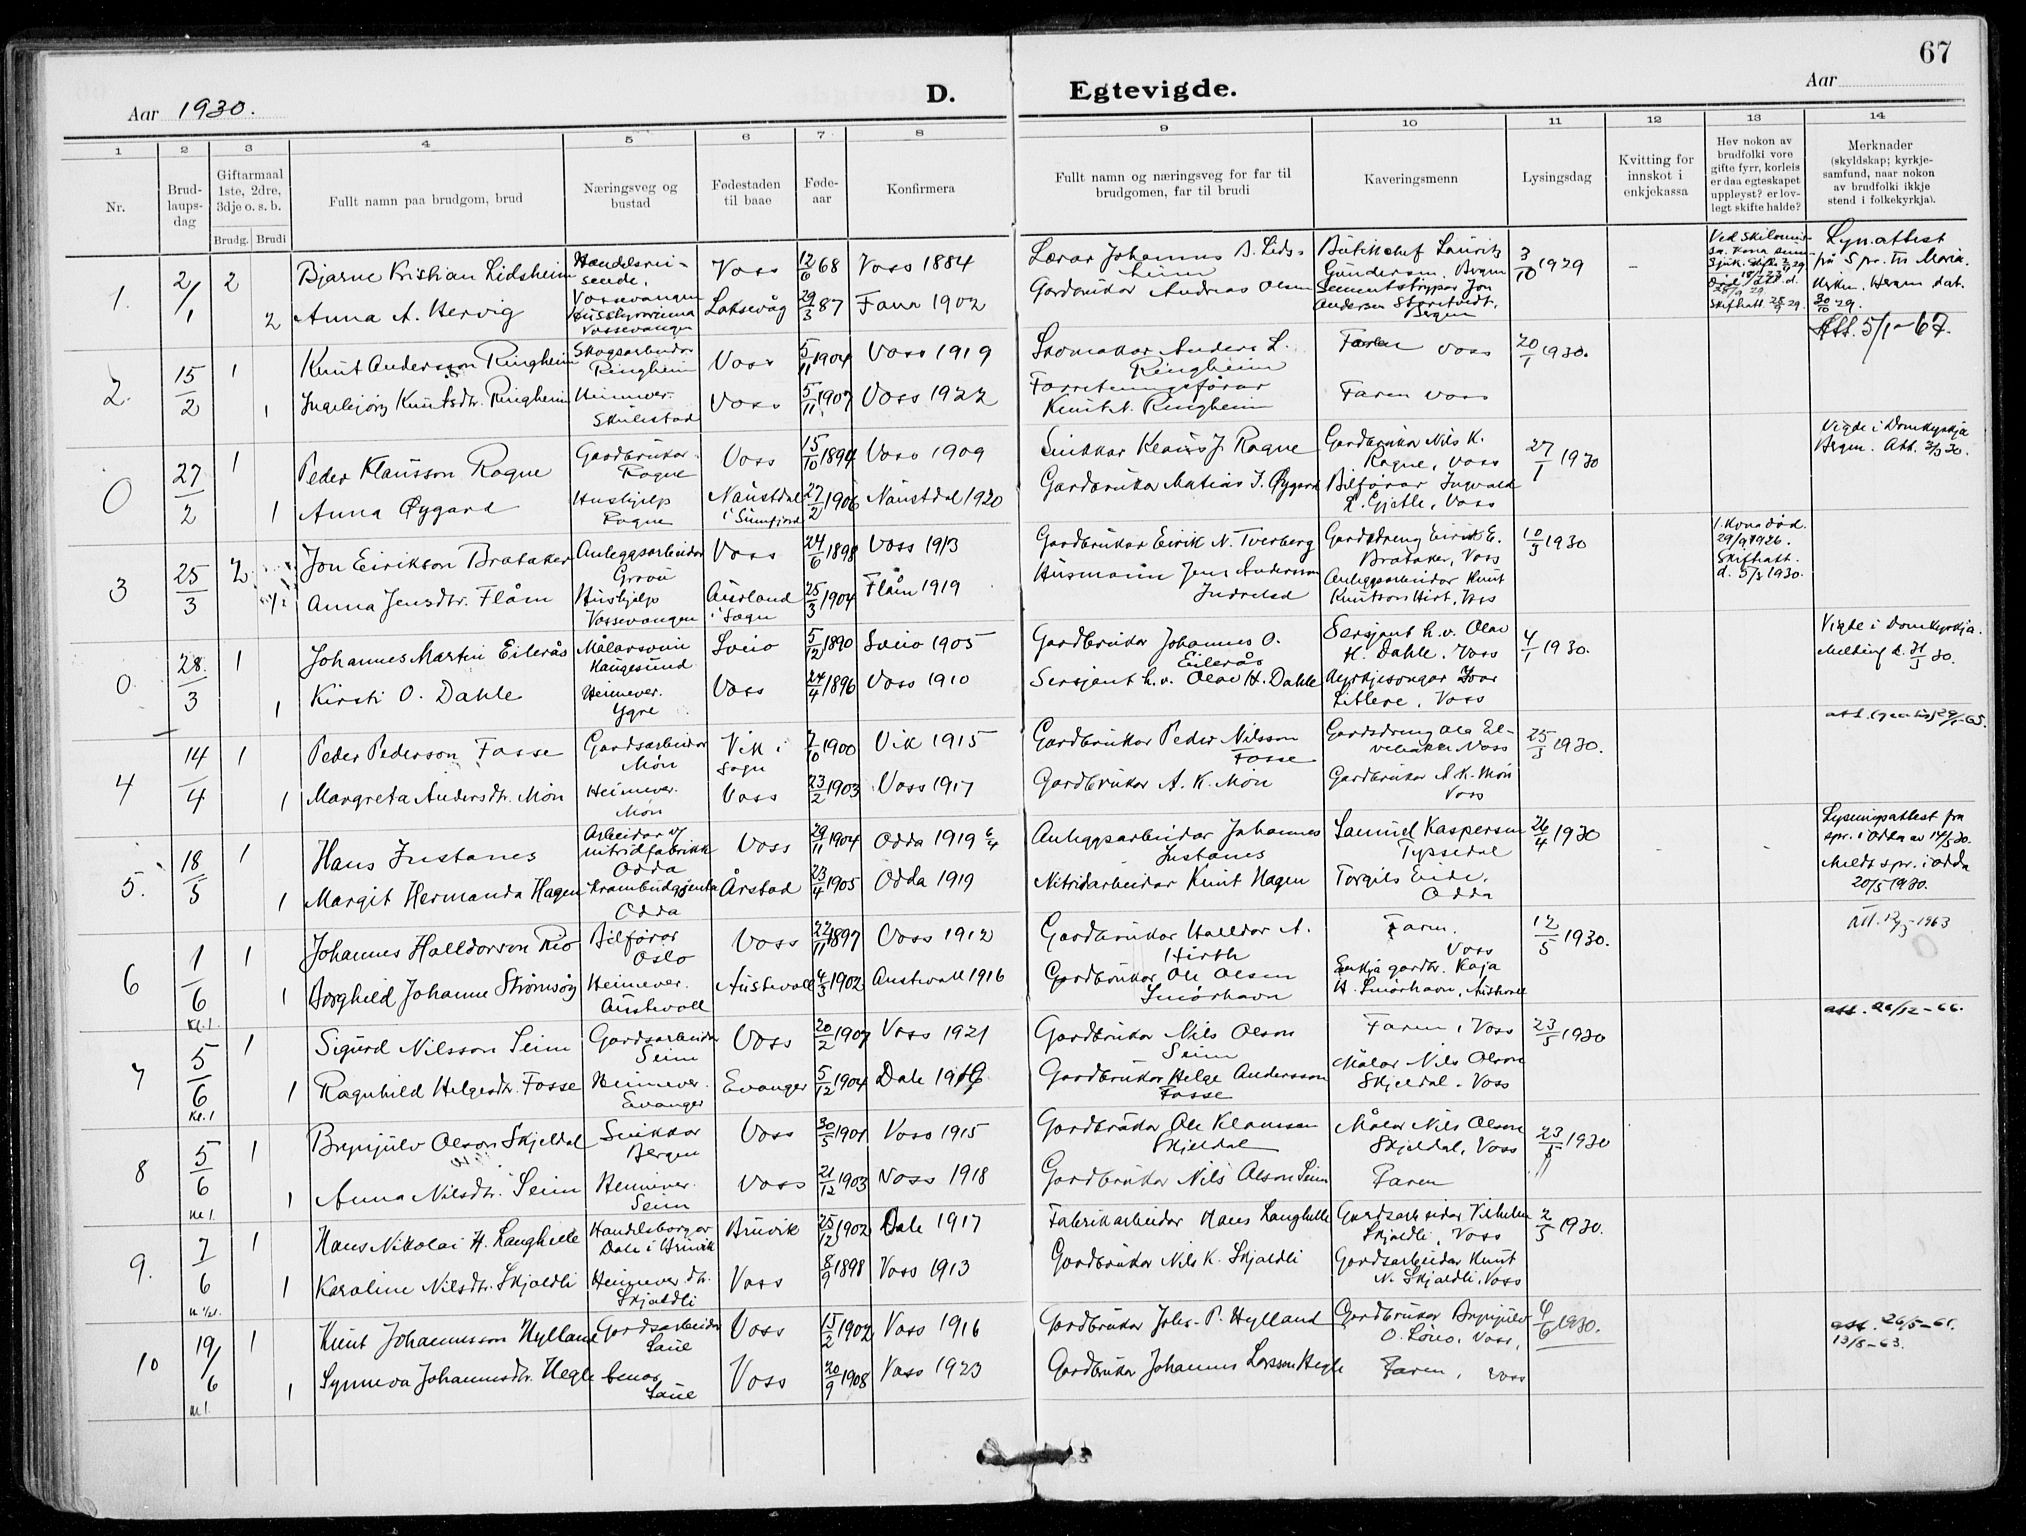 67
Aar 1930.
D. Egtevigde.
Aar
1 2 3 4 5 6 7 8 9 10 11 12 13 14
Nr.
Brud-
laups-
dag
Giftarmaal
1ste, 2dre,
3dje o. s. b.
Brudg. Brudi
Fullt namn paa brudgom, brud
Næringsveg og
bustad
Fødestaden
til baae
Føde-
aar
Konfirmera
Fullt namn og næringsveg for far til
brudgomen, far til brudi
Kaveringsmenn
Lysingsdag
Kvitting for
innskot i
enkjekassa
Hev nokon av
brudfolki vore
gifte fyrr, korleis
er daa egteskapet
uppleyst? er lov-
legt skifte halde?
Merknader
(skyldskap; kyrkje-
samfund, naar nokon
av brudfolki ikkje
stend i folkekyrkja).
1. 2/1 2 Bjarne Kristian Lidsheim Handelsrei-
sende, Vossevangen Voss 12/6 68 Voss 1884 Lærar Johannes B. Lids-
heim Butikkchef Lauritz
Gundersen, Bergen 3/10 1929 -
2 Anna A. Hervig
Vossevangen Laksevåg 29/3 87 Fana 1902 Gardbrukar Andreas Olsen
Andersen Storetvedt,
Bergen
Lys.attest
Att. 5/1-67.
2. 15/2 1 Knut Andersson Ringheim Skogsarbeidar
Ringheim Voss 5/11 1904 Voss 1919 Skomakar Anders L.
Ringheim Faren Voss 20/1 1930.
1 Ingebjørg Knutsdtr. Ringheim Heimever.
Skulestad Voss 5/11 1907 Voss 1922 Forretningsførar
Knut A. Ringheim Faren Voss
0 27/2 1 Peder Klausson Rogne Gardbrukar
Rogne Voss 15/10 1894 Voss 1909 Snikkar Klaus J. Rogne Gardbrukar Nils K.
Rogne, Voss 27/1 1930 Vigde i Domkyrkja
Bergen. Att. 3/3 30.
1 Anna Øygard Hushjelp
Rogne Naustdal
i Sunnfjord 27/2 1906 Naustdal 1920 Gardbrukar Matias J. Øygard Bilførar Ingvald
L. Gjetle, Voss
3 25/3 2 Jon Eirikson Brataker Anleggsarbeidar
Voss 24/6 1898 Voss 1913 Gardbrukar Eirik N. Tverberg Gardsdreng Eirik E.
Brataker, Voss 10/3 1930 1. kona død
29/9 1926.
Skifteatt.
d. 5/3 1930.
Anna Jensdtr. Flåm Hushjelp
Vossevangen Aurland
i Sogn 25/3 1904 Flåm 1919 Husmann Jens Andersson
Indrelid Anleggsarbeidar Knut
Knutson Hirt, Voss
0. 28/3 1 Johannes Martin Eilerås Målarsvein
Haugesund Sveio 5/12 1890 Sveio 1905 Gardbrukar Johannes O.
Eilerås Sersjant h.v. Olav
H. Dahle, Voss 4/1 1930. Vigde i Domkyrkja.
Melding d. 31/3 30.
1 Kirsti O. Dahle Heimever.
Ygre Voss 24/4 1896 Voss 1910 Sersjant h.v. Olav H. Dahle Kyrkjesongar Ivar
Litlere, Voss
4 14/4 1 Peder Pederson Fosse Gardsarbeidar
Møn Vik i
Sogn 7/10 1900 Vik 1915 Gardbrukar Peder Nilsson
Fosse Gardsdreng Ola El-
vebakk Voss 25/3 1930.
1 Margreta Andersdtr. Møn Heimever.
Møn Voss 23/2 1903 Voss 1917 Gardbrukar A. K. Møn Gardbrukar A. K. Møn
Voss
5. 18/5 1 Hans Instanes Arbeidar v/
nitridfabrikk
Odda Voss 29/11 1904 Odda 1919 6/4 Anleggsarbeidar Johannes
Instanes Samuel Kaspersen
Tyssedal 26/4 1930 Lysingsattest fra
spr. i Odda av 14/5 30.
Meldt spr. i Odda
20/5 1930.
1 Margit Hermanda Hagen Krambudgjenta
Odda Årstad 23/4 1905 Odda 1919 Nitridarbeidar Knut Hagen Torgils Eide,
Odda
6 1/6 1 Johannes Halldorson Rio Bilførar
Oslo Voss 22/11 1897 Voss 1912 Gardbrukar Halldor A.
Hirth Faren.
Voss 12/5 1930.
Kl.1. 1 Borghild Johanne Strømsøy Heimever.
Austevoll Austevoll 4/3 1902 Austevoll 1916 Gardbrukar Ole Olsen
Smørhavn Enkja gardbr. Kaja
H. Smørhavn, Austevoll
att. 20/12-66.
7 5/6 1 Sigurd Nilsson Seim Gardsarbeidar
Seim Voss 20/2 1907 Voss 1921 Gardbrukar Nils Olson
Seim Faren, Voss 23/5 1930
Kl.1 1 Ragnhild Helgesdtr. Fosse Heimever.
Evanger Evanger 5/12 1904 Dale 1919 Gardbrukar Helge Andersson
Fosse Målar Nils Olson
Skjeldal, Voss
8 5/6 1 Brynjulv Olson Skjeldal Snikkar
Bergen Voss 30/5 1901 Voss 1915 Gardbrukar Ole Klausson
Skjeldal Målar Nils Olson
Skjeldal, Voss 23/5 1930
kl.1. 1 Anna Nilsdtr. Seim Heimever.
Seim Voss 21/12 1903 Voss 1918 Gardbrukar Nils Olson Seim Faren
9. 7/6 1 Hans Nikolai H. Langhelle Handelsborgar
Dale i Bruvik Bruvik 25/12 1902 Dale 1917 Fabrikarbeidar Hans Langhelle Gardsarbeidar Vilhelm
Skjoldli, Voss 2/5 1930.
1 Karoline Nilsdtr. Skjoldli Heimever. dtr.
Skjoldli Voss 8/9 1898 Voss 1913 Gardbrukar Nils K. Skjoldli Gardsarbeidar Knut
N. Skjoldli, Voss
10 19/6 1 Knut Johannesson Hylland Gardsarbeidar
Saue Voss 15/2 1902 Voss 1916 Gardbrukar Johs. P. Hylland Gardbrukar Brynjulv
O. Lono, Voss, 6/6 1930. att. 26/5-61.
13/8-63.
kl.1. 1 Synneva Johannesdtr. Hegle
Saue Voss 20/9 1908 Voss 1923 Gardbrukar Johannes Larsson Hegle Faren, Voss